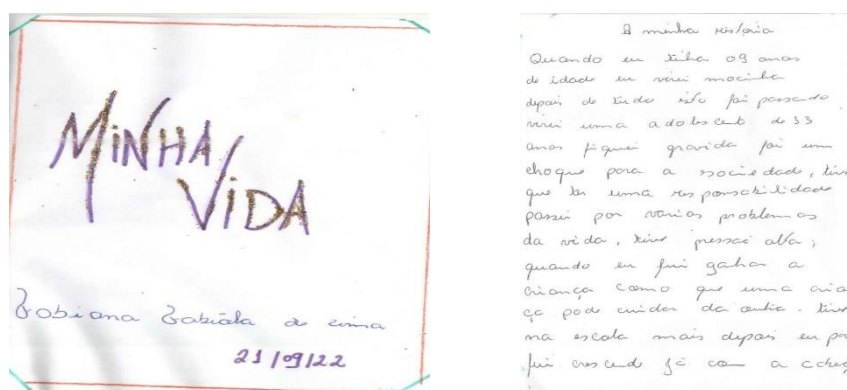 MINHA
VIDA
Fabiana Fabíola de Lima
21/09/22
A minha história
Quando eu tinha 09 anos
de idade eu virei mocinha
depois de tudo isto foi passando
virei uma adolescent de 13
anos fiquei gravida foi um
choque para a sociedade, tive
que ter uma responsabilidade
passei por varios problemas
da vida, tive pressaõ alta,
quando eu fui ganhar a
criança como que uma cria
ça pode cuidar da outra. tive
na escola mais depois eu
fui crescend já com a